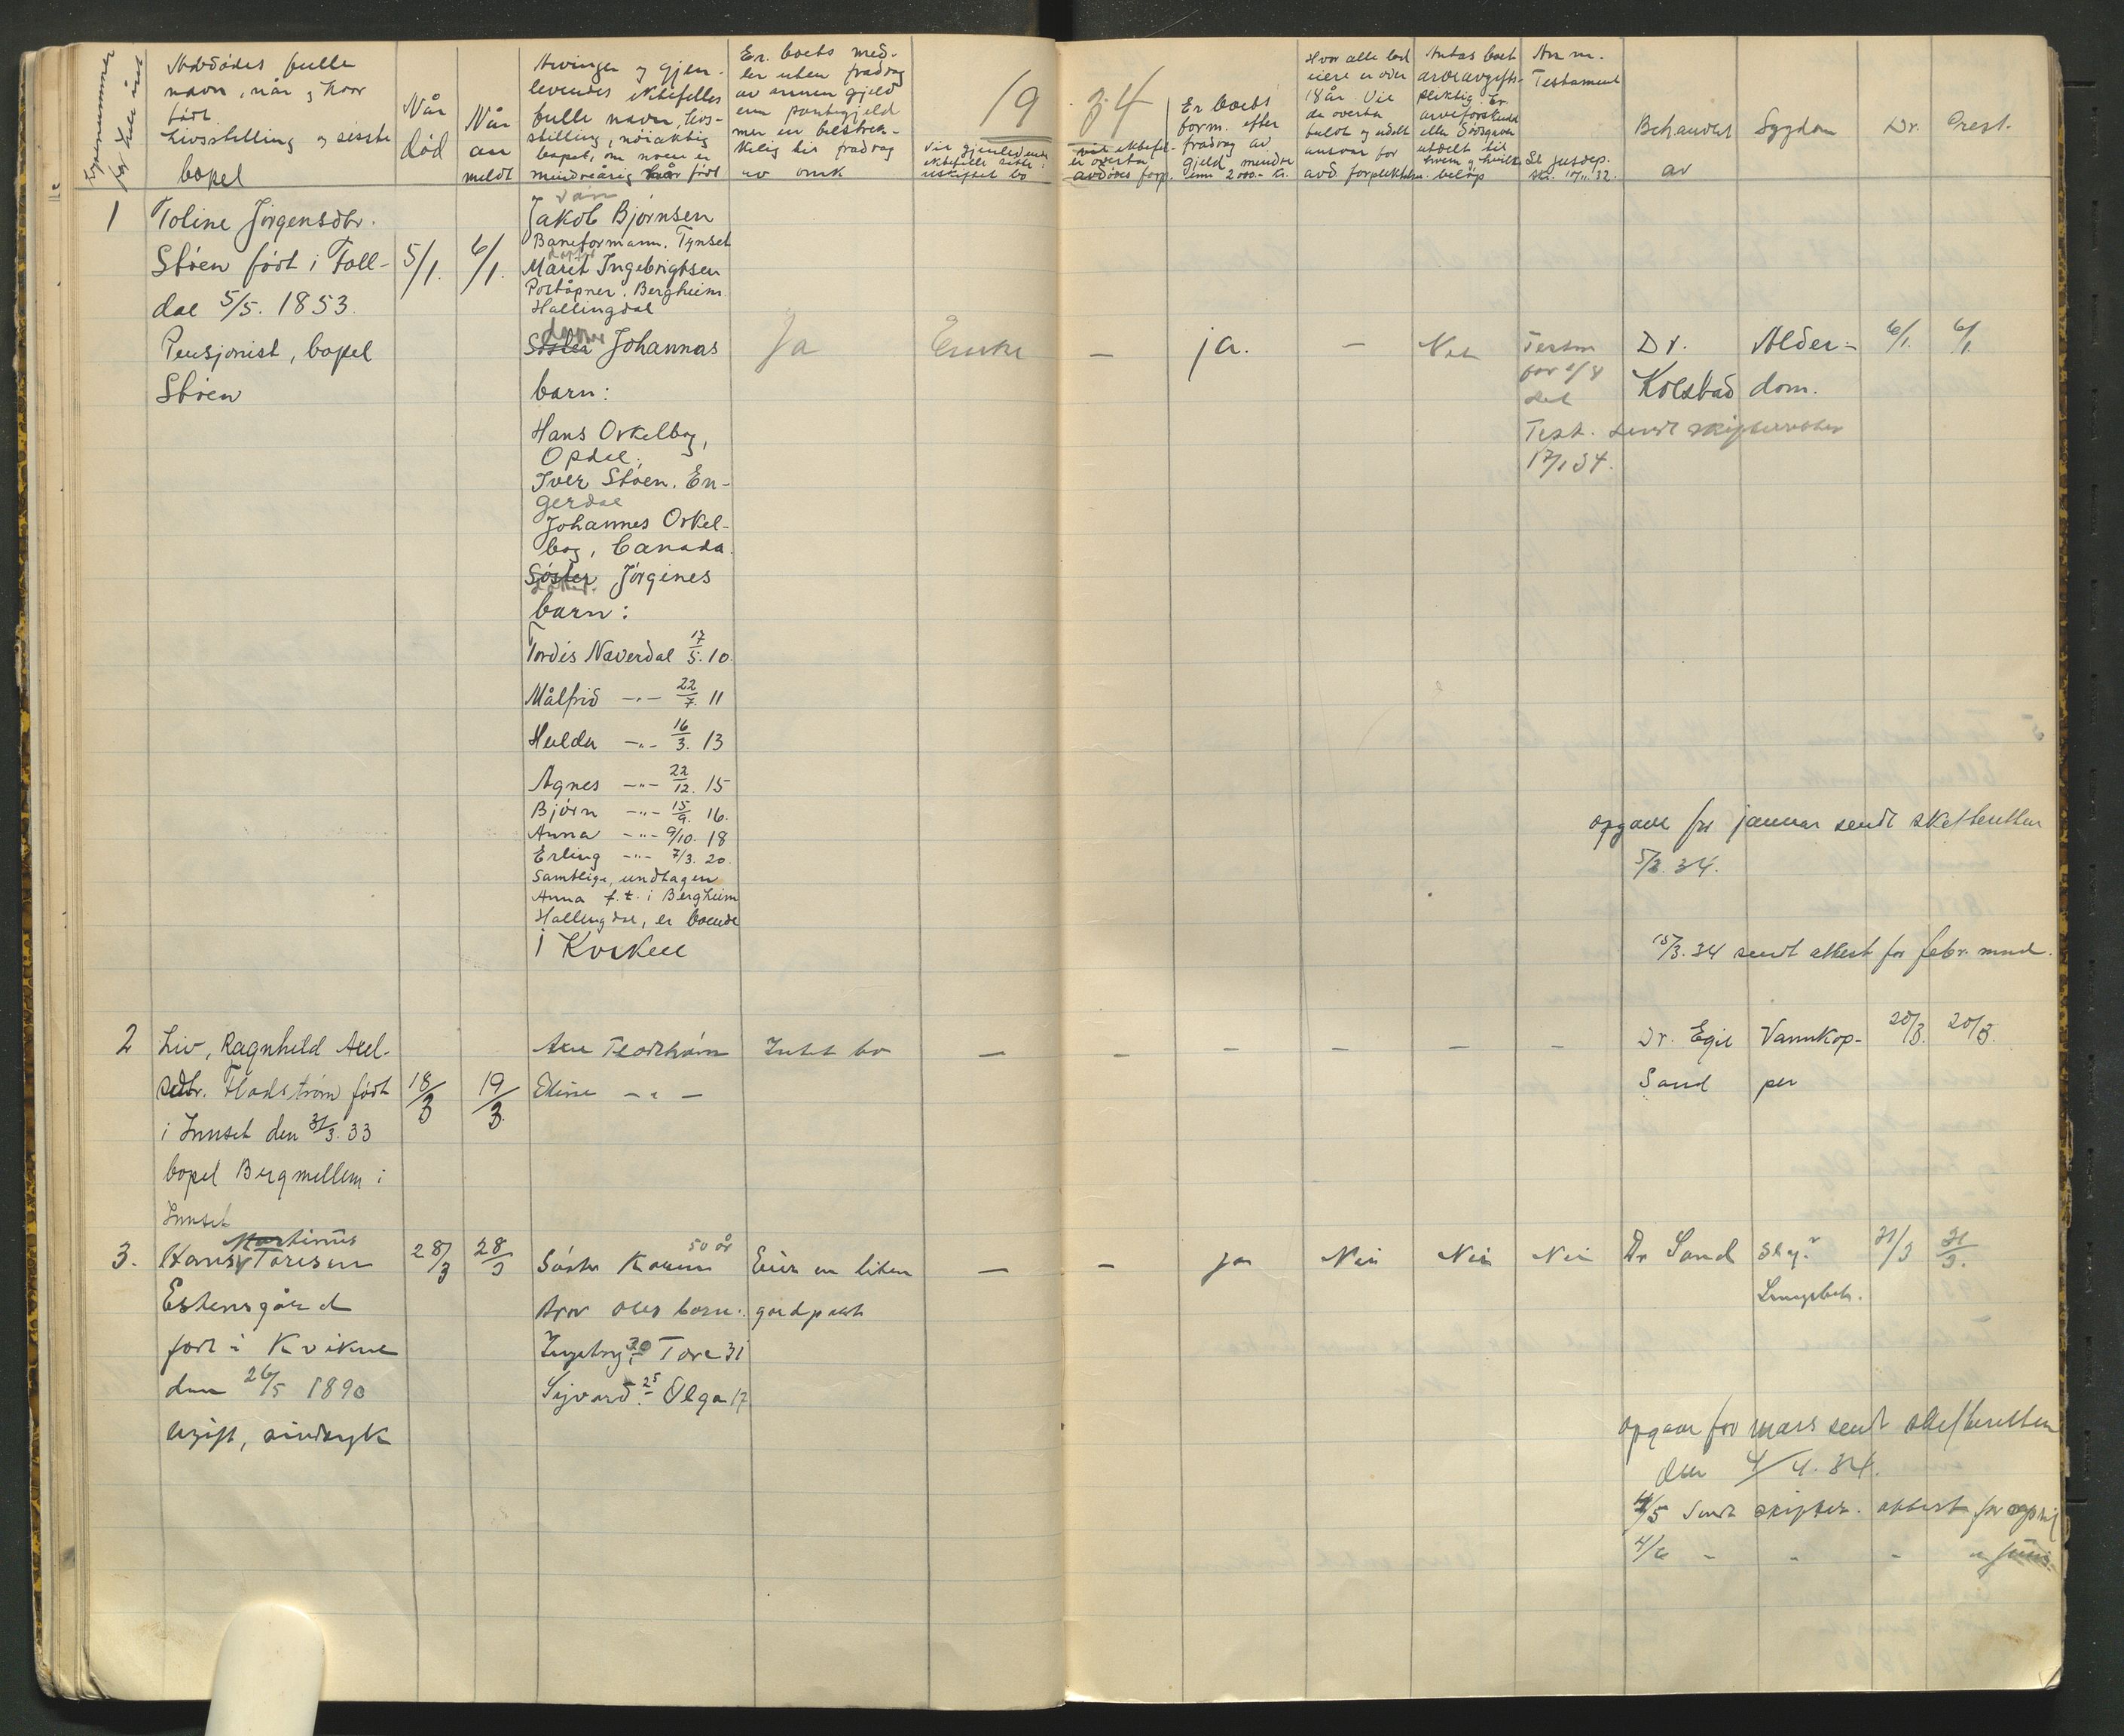 Løpenummer
for hele året
Avdødes fulle
navn, når og hvor
født.
Livsstilling og sisste
bopel
Når
død
Når
an
meldt
Arvinger og gjen-
levendes ektefelles
fulle navn, livs-
stilling, nøiaktig
bopel, om noen er
mindreårig når født
Er boets mid-
ler uten fradrag
av annen gjeld
enn pantegjeld
mer en
kelig til fradrag
av omk
1934
Vil gjenlevende
ektefelle sitte i
uskiftet bo
vil ektefel-
le overta
avdødes forp.
Er boets
form. efter
fradrag av
gjeld mindre
enn 2000.- kr.
Hvor alle lod
eiere er over
18 år. Vil
de overta
fuldt og udelt
ansvar for
avd. forpliktelser.
Antas boet
arveavgifts-
pliktig. Er
arveforskudd
eller Dødsgaver
utdelt til
hvem og hvilke
beløp
Anm.
Testament
Se Jusdep.
skr. 10/11. 32.
Behandlet
av
Sygdom
Dr.
Prest.
1
Toline Jørgensdtr.
Støen født i Foll-
dal 5/5. 1853.
Pensjonist, bopel
Støen
5/1.
6/1.
Jakob Bjørnsen
Baneformann. Tynset
Marit Ingebrigtsen
Poståpner. Bergheim
Hallingdal
Søster Johannas
barn:
Hans Orkelbog,
Opdal.
Iver Støen. En-
gerdal
Johannes Orkel-
bog, Canada.
Søster Jørgines
barn:
Tordis Naverdal 17/5. 10.
Målfrid -"- 22/7. 11
Hulda -"- 16/3. 13
Agnes -"- 22/12. 15
Bjørn -"- 15/9. 16.
Anna -"- 9/10. 18
Erling -"- 7/3. 20.
Samtlige, undtagen
Anna f.t. i Bergheim
Hallingdal, er boende
i Kvikne
Ja
Enke
—
ja.
—
Nei
Dr.
Kolstad
Alder-
dom.
6/1.
6/1.
Test. sendt skifteretten
17/1 34.
opgave for januar sendt skifteretten
5/2. 34.
15/3. 34 sendt attest for febr. mnd.
2
Liv, Ragnhild Axel-
sdtr. Flodstrøm født
i Innset den 31/3. 33
bopel Bergmellem i
Innset
18/3
19/3.
Axel Flodstrøm
Eline -"-
Intet bo
— — — — — —
Dr. Egil
Sand
Vannkop-
per
20/3.
20/3.
3.
Martinus
Hans Toresen
Estensgård
født i Kvikne
den 26/5 1890
ugift, sindsyk
28/3
28/3
50 år
Søster Karen
bror Oles barn:
Ingebrg 30 Tore 31
Sigvard 25 Olga 17
Eier en liten
gårdpart
— —
Ja
Nei
Nei
Nei
Dr Sand
Slag?
31/3
31/3.
opgave for mars sendt skifteretten
den 4/4. 34.
4/5 Sendt skifter. attest for april
4/6 " " " " juni